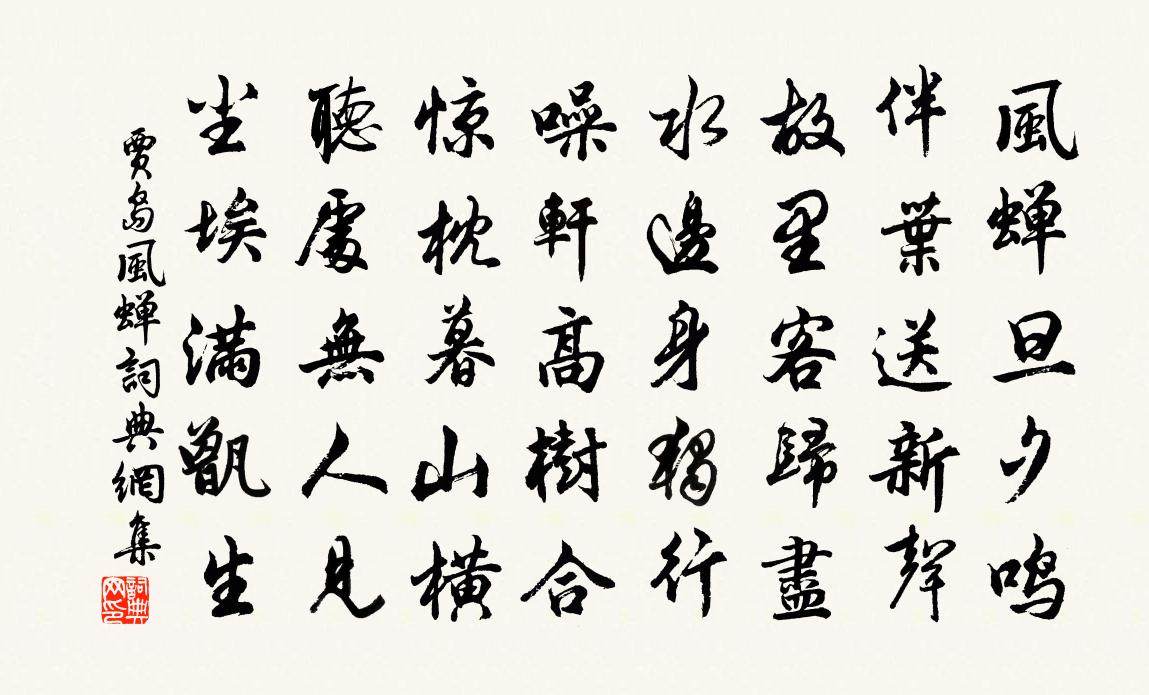 風蟬旦夕鳴
伴葉送新聲
故里客歸盡
水邊身獨行
噪軒高樹合
惊枕暮山橫
聽處無人見
尘埃滿甑生
賈島風蟬詞典網集
詞典